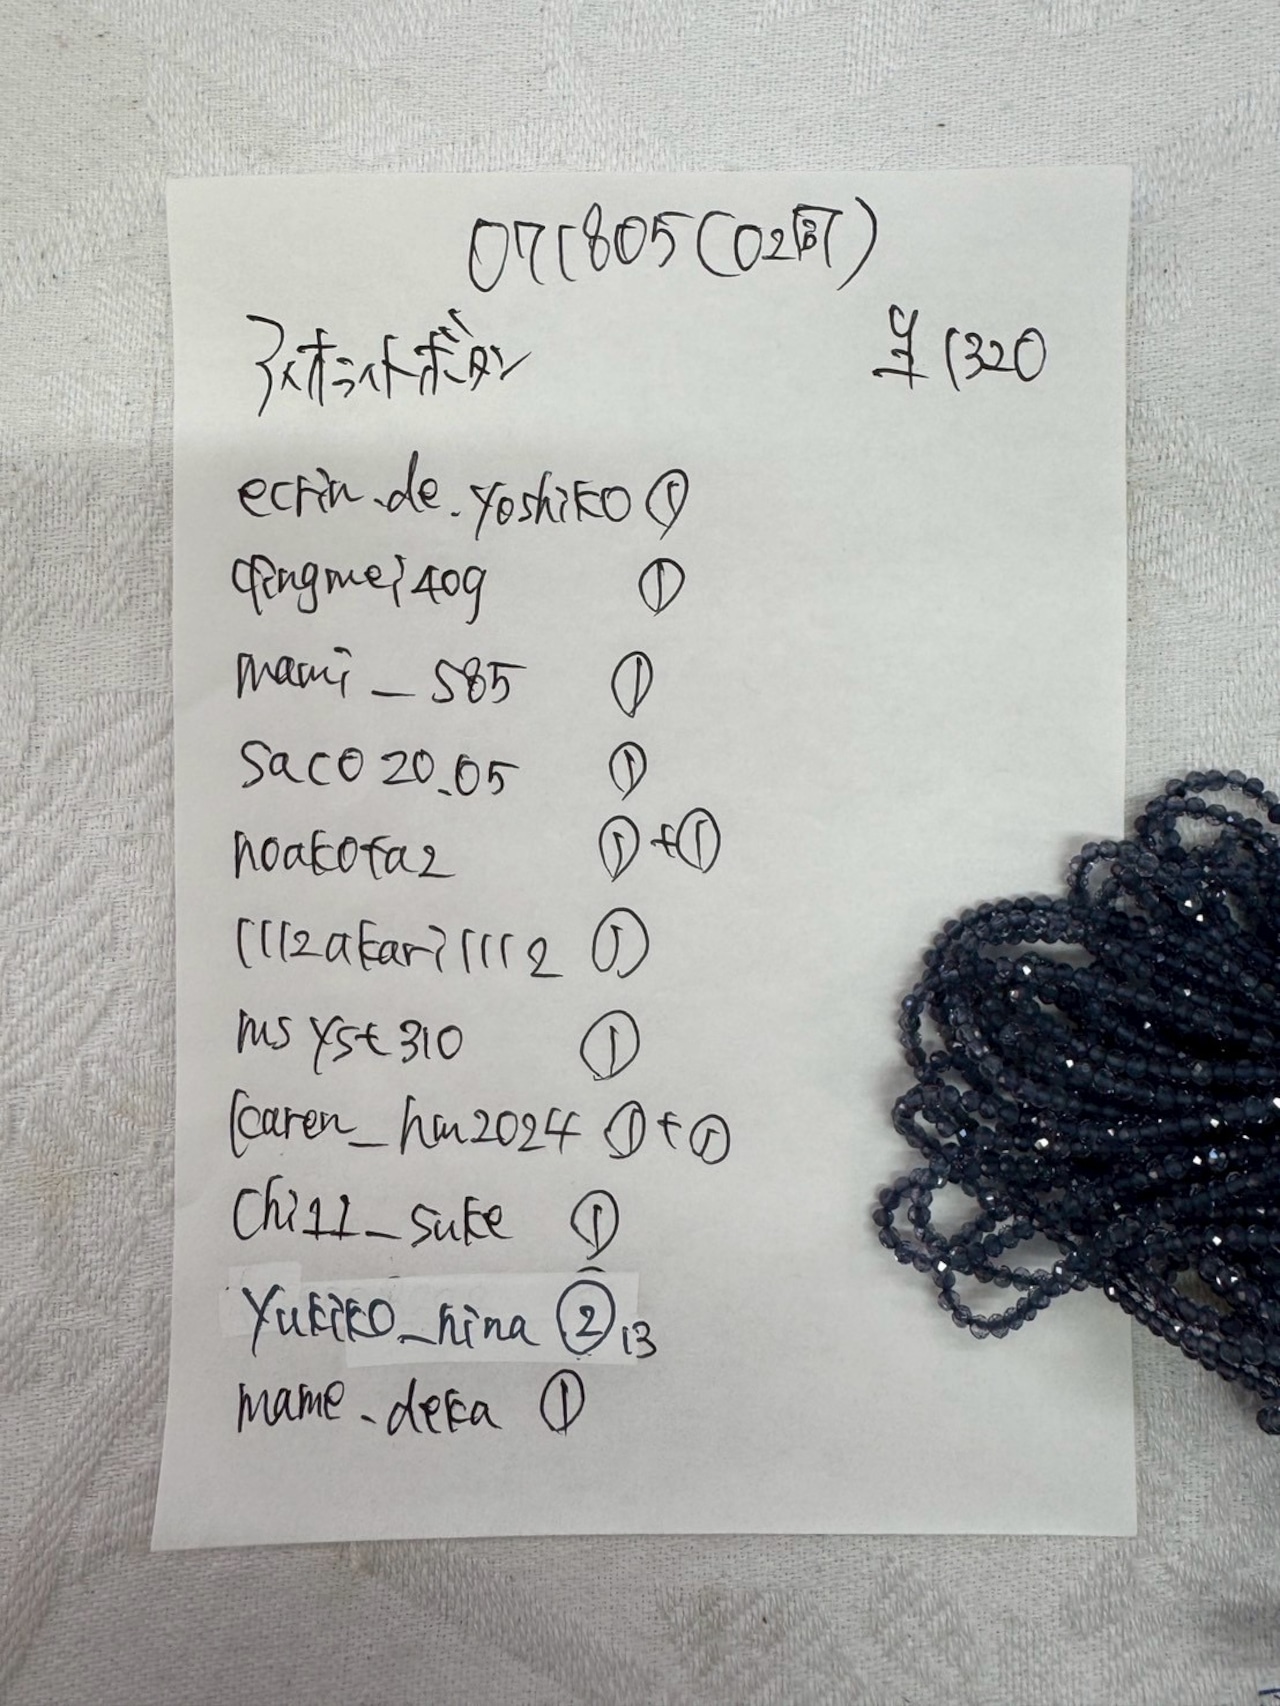 071805(02西)
アイオライトボタン ¥1320
ecrin.de.yoshiko ①
qingmei409 ①
mami_585 ①
saco20.05 ①
noakota2 ①+①
1112akari1112 ①
msyst310 ①
karen_hm2024 ①+①
chi11_suke ①
yukiko_nina ② 13
mame.deka ①